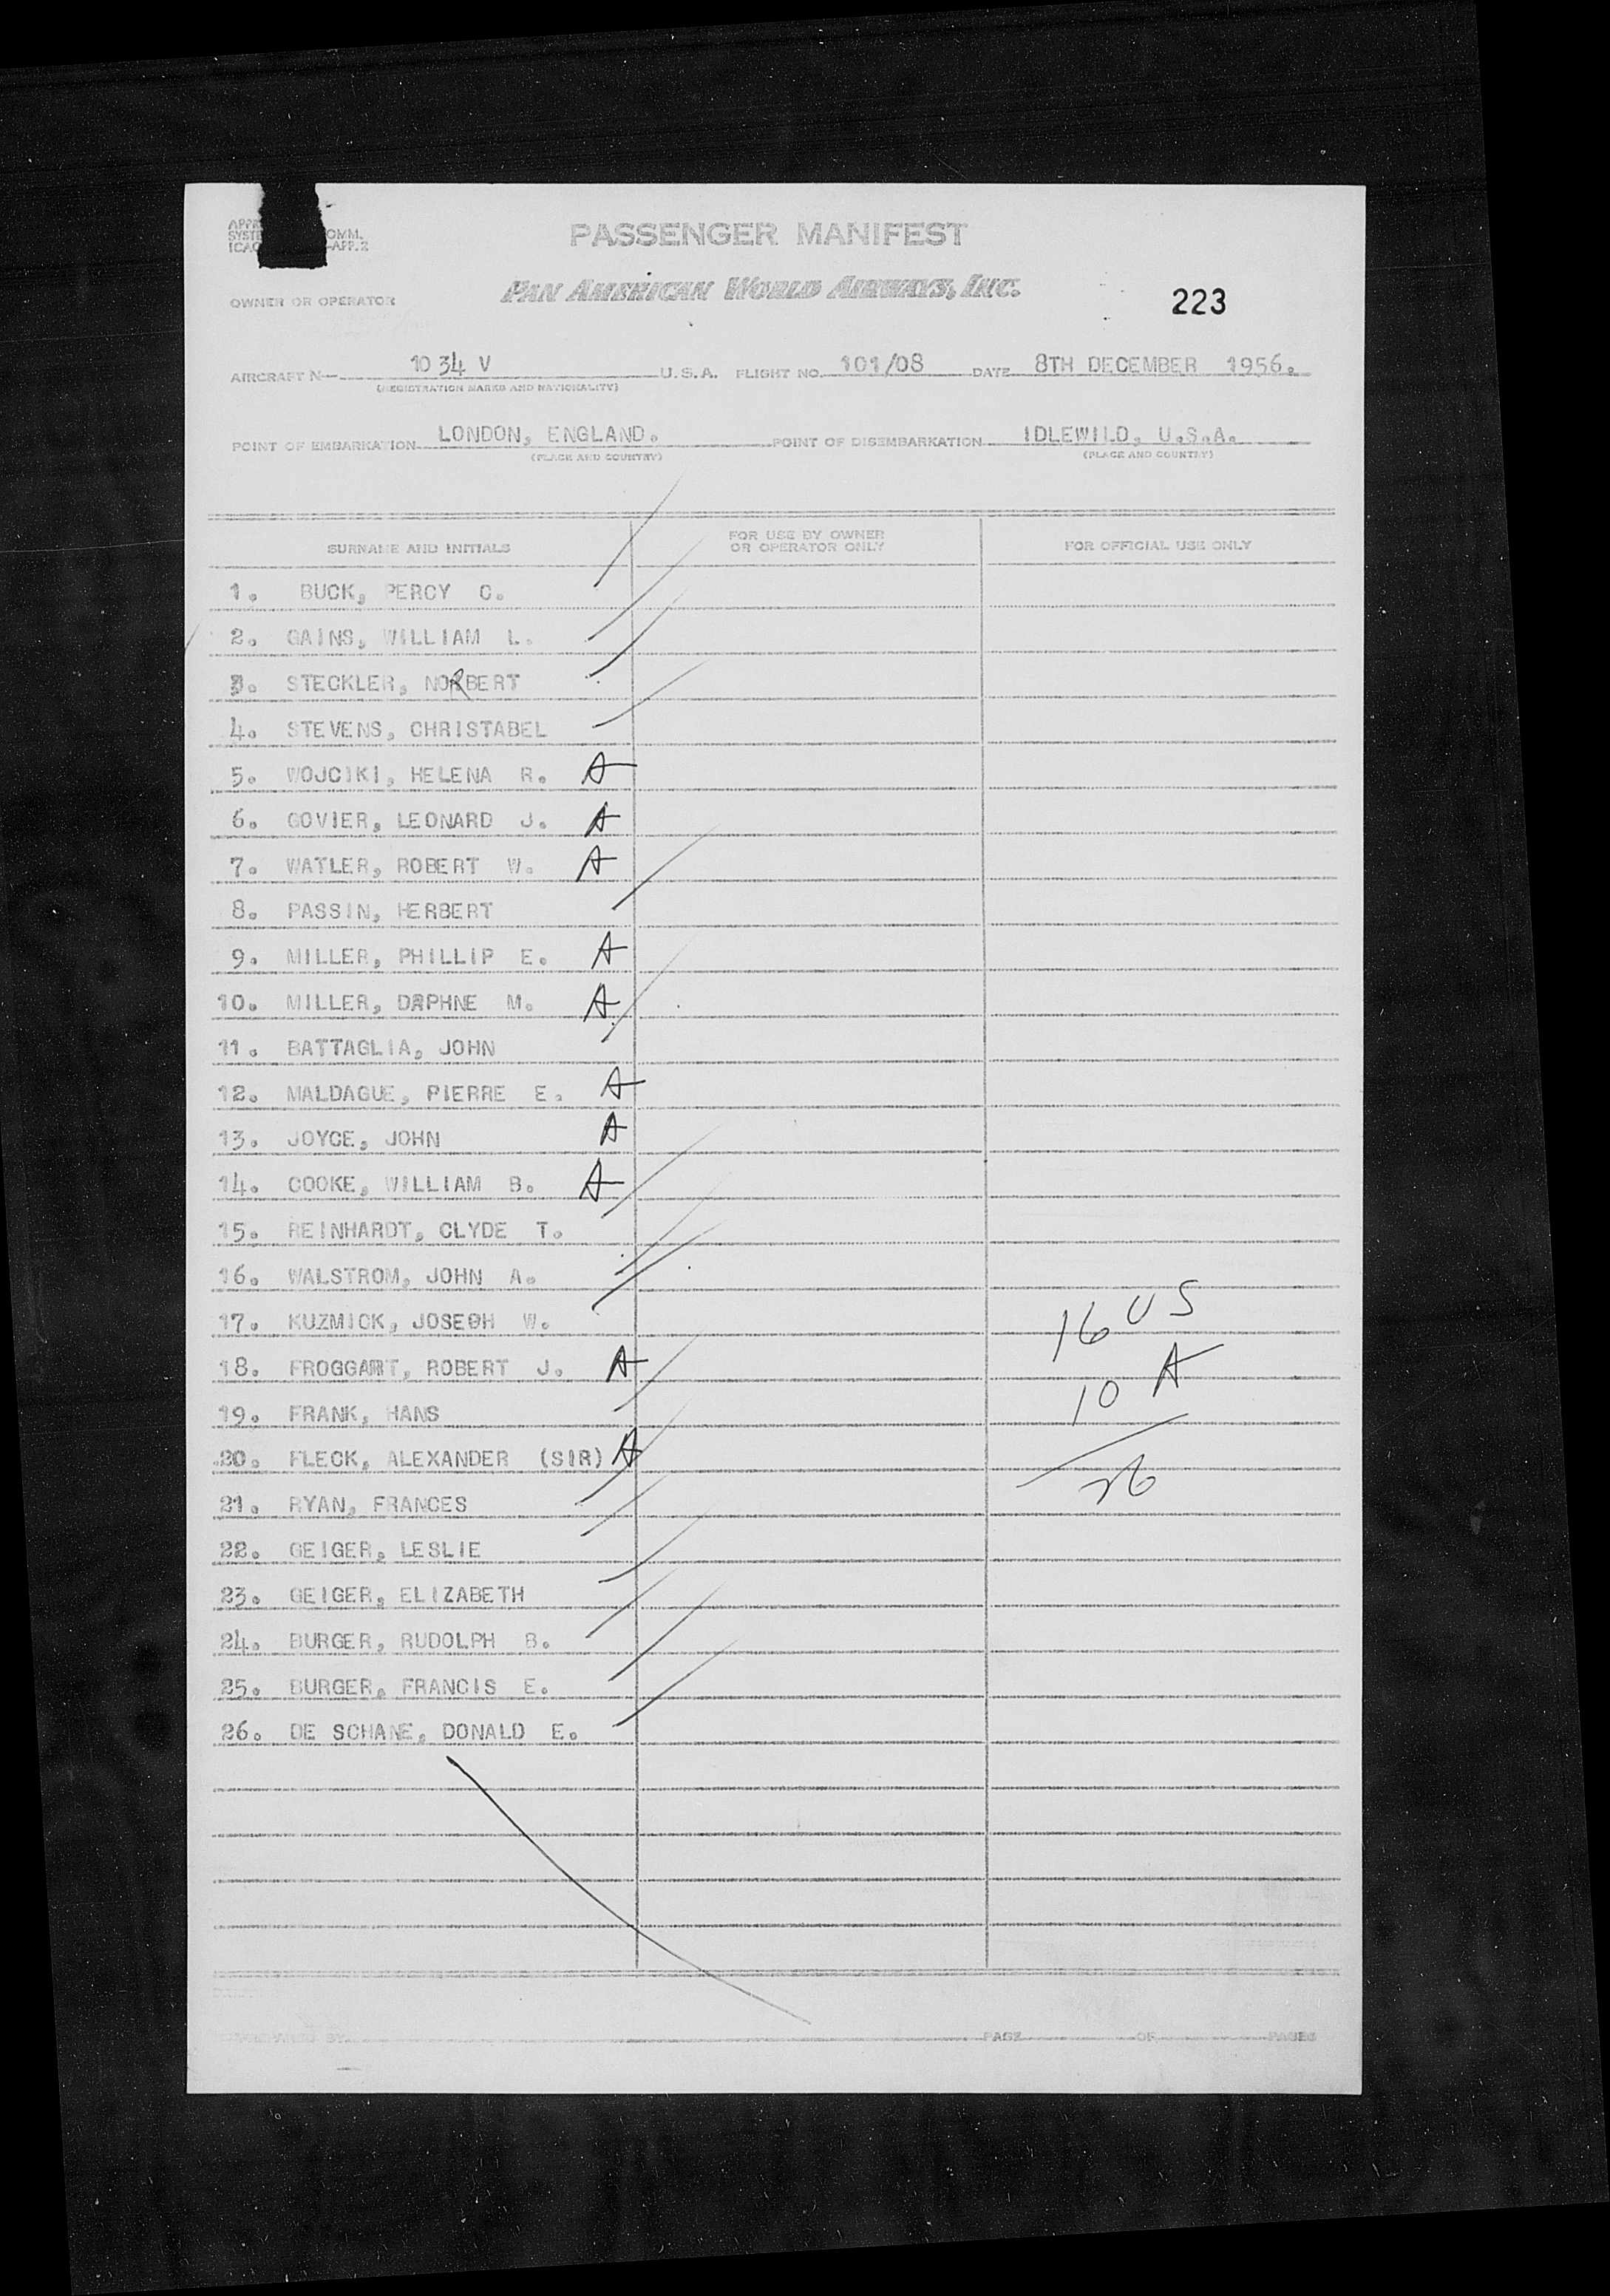 PASSENGER MANIFEST
OMM.
-APP.2
OWNER OR OPERATOR
PAN AMERICAN WORLD AIRWAYS, INC.
223
AIRCRAFT N— 1034 V U.S.A. FLIGHT NO. 101/08 DATE 8TH DECEMBER 1956.
(REGISTRATION MARKS AND NATIONALITY)
POINT OF EMBARKATION LONDON, ENGLAND. POINT OF DISEMBARKATION IDLEWILD, U.S.A.
(PLACE AND COUNTRY) (PLACE AND COUNTRY)
SURNAME AND INITIALS
FOR USE BY OWNER
OR OPERATOR ONLY
FOR OFFICIAL USE ONLY
1. BUCK, PERCY C.
2. GAINS, WILLIAM L.
3. STECKLER, NORBERT
4. STEVENS, CHRISTABEL
5. WOJCIKI, HELENA R. A
6. GOVIER, LEONARD J. A
7. WATLER, ROBERT W. A
8. PASSIN, HERBERT
9. MILLER, PHILLIP E. A
10. MILLER, DAPHNE M. A
11. BATTAGLIA, JOHN
12. MALDAGUE, PIERRE E. A
13. JOYCE, JOHN A
14. COOKE, WILLIAM B. A
15. REINHARDT, CLYDE T.
16. WALSTROM, JOHN A.
17. KUZMICK, JOSEPH W.
16 US
18. FROGGATT, ROBERT J. A
10 A
19. FRANK, HANS
20. FLECK, ALEXANDER (SIR) A
26
21. RYAN, FRANCES
22. GEIGER, LESLIE
23. GEIGER, ELIZABETH
24. BURGER, RUDOLPH B.
25. BURGER, FRANCIS E.
26. DE SCHANE, DONALD E.
PAGE OF PAGES